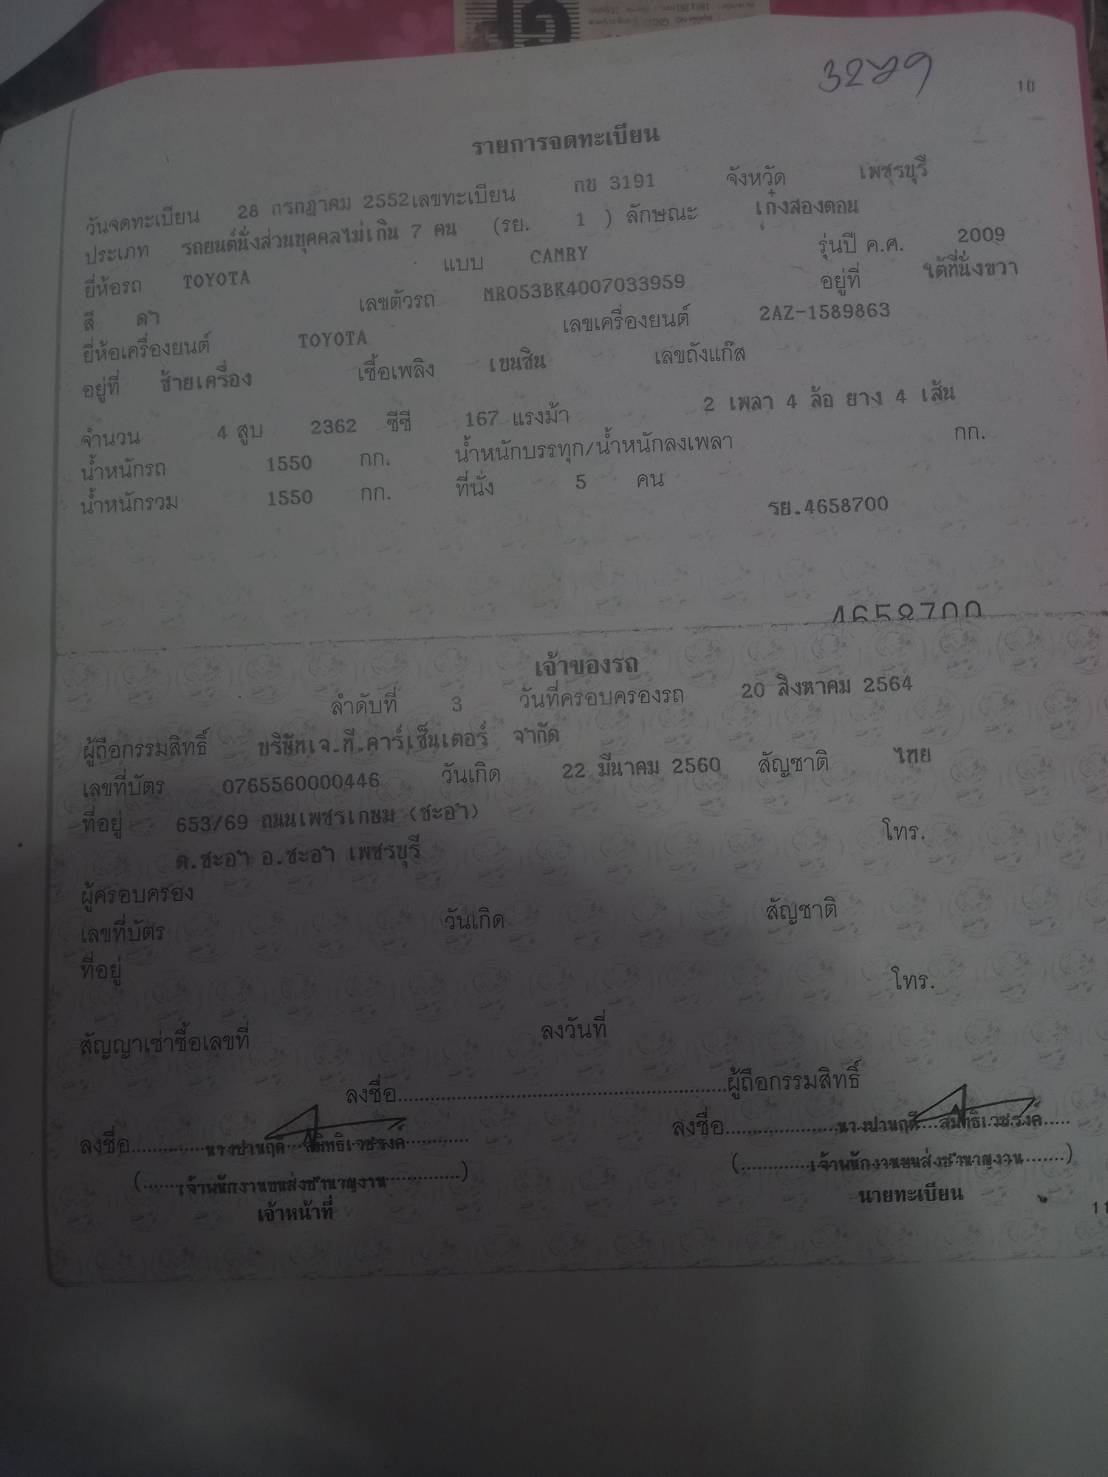 3279
10
รายการจดทะเบียน
วันจดทะเบียน 28 กรกฎาคม 2552 เลขทะเบียน กข 3191 จังหวัด เพชรบุรี
ประเภท รถยนต์นั่งส่วนบุคคลไม่เกิน 7 คน (รย. 1 ) ลักษณะ เก๋งสองตอน
ยี่ห้อรถ TOYOTA แบบ CAMRY รุ่นปี ค.ศ. 2009
สี ดำ เลขตัวรถ MR053BK4007033959 อยู่ที่ ใต้ที่นั่งขวา
ยี่ห้อเครื่องยนต์ TOYOTA เลขเครื่องยนต์ 2AZ-1589863
อยู่ที่ ซ้ายเครื่อง เชื้อเพลิง เบนซิน เลขถังแก๊ส
จำนวน 4 สูบ 2362 ซีซี 167 แรงม้า 2 เพลา 4 ล้อ ยาง 4 เส้น
น้ำหนักรถ 1550 กก. น้ำหนักบรรทุก/น้ำหนักลงเพลา กก.
น้ำหนักรวม 1550 กก. ที่นั่ง 5 คน
รย.4658700
4658700
เจ้าของรถ
ลำดับที่ 3 วันที่ครอบครองรถ 20 สิงหาคม 2564
ผู้ถือกรรมสิทธิ์ บริษัทเจ.ที.คาร์เซ็นเตอร์ จำกัด
เลขที่บัตร 0765560000446 วันเกิด 22 มีนาคม 2560 สัญชาติ ไทย
ที่อยู่ 653/69 ถนนเพชรเกษม (ชะอำ)
ต.ชะอำ อ.ชะอำ เพชรบุรี โทร.
ผู้ครอบครอง
เลขที่บัตร วันเกิด สัญชาติ
ที่อยู่
โทร.
สัญญาเช่าซื้อเลขที่ ลงวันที่
ลงชื่อ..........ผู้ถือกรรมสิทธิ์
ลงชื่อ..........นางปานฤดี สมิทธิเวชรงค์.......... ลงชื่อ..........นางปานฤดี สมิทธิเวชรงค์.....
(.......เจ้าพนักงานขนส่งชำนาญงาน..........) (..........เจ้าพนักงานขนส่งชำนาญงาน.......)
เจ้าหน้าที่ นายทะเบียน
11